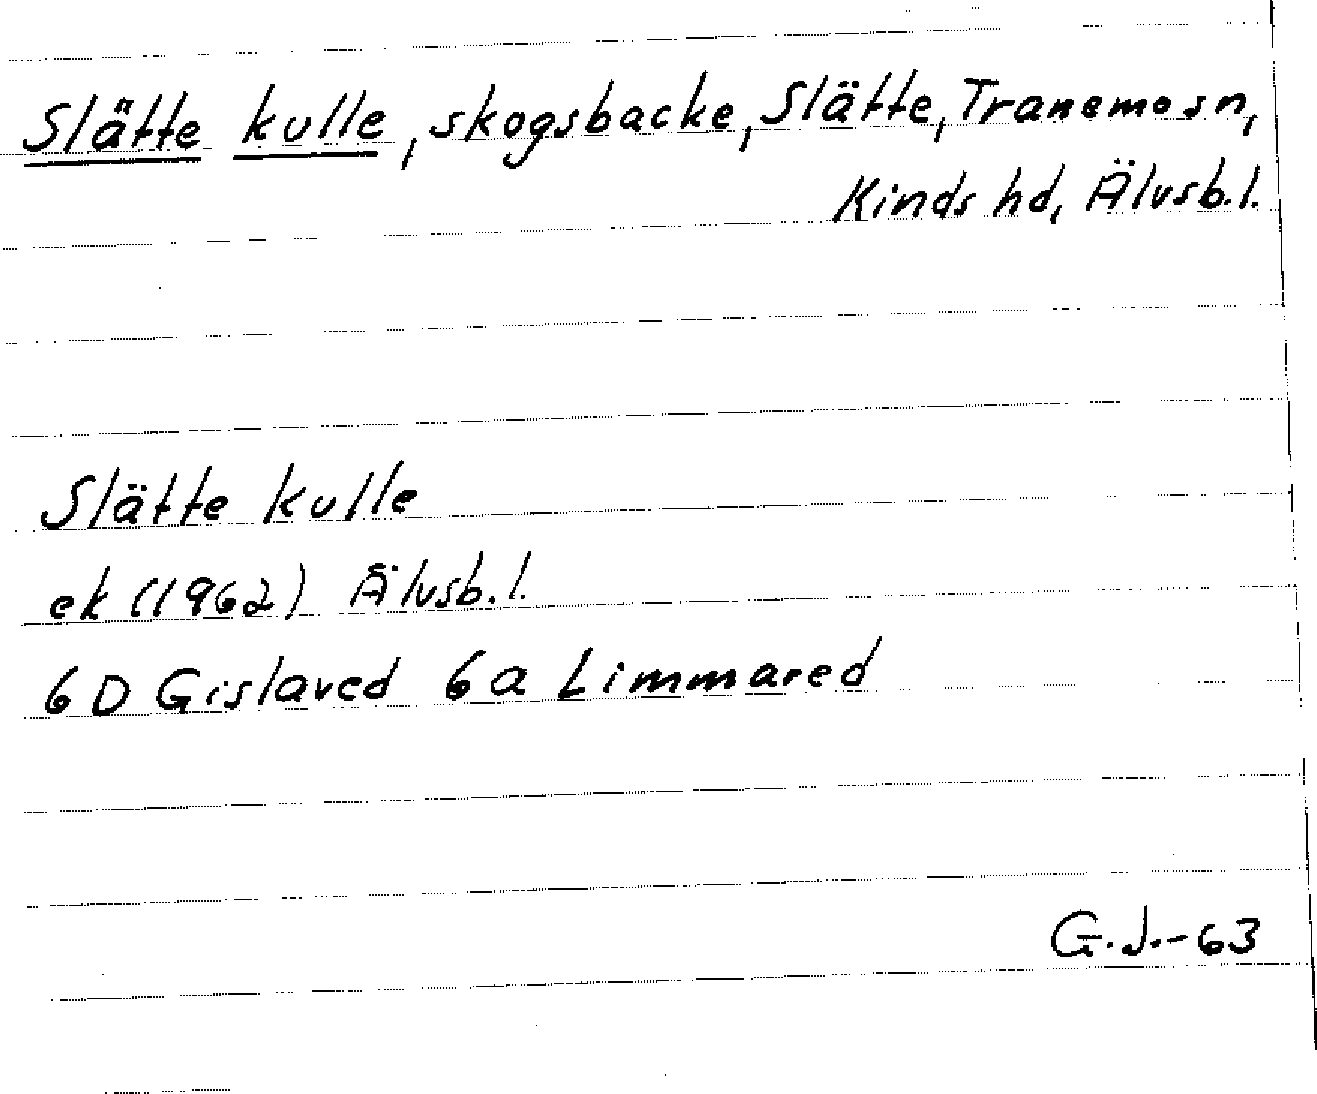 Slätte kulle, skogsbacke, Slätte, Tranemo sn,
Kinds hd, Älvsb.l.
Slätte kulle
ek (1962) Älvsb.l.
6D Gislaved 6a Limmared
G.J.-63